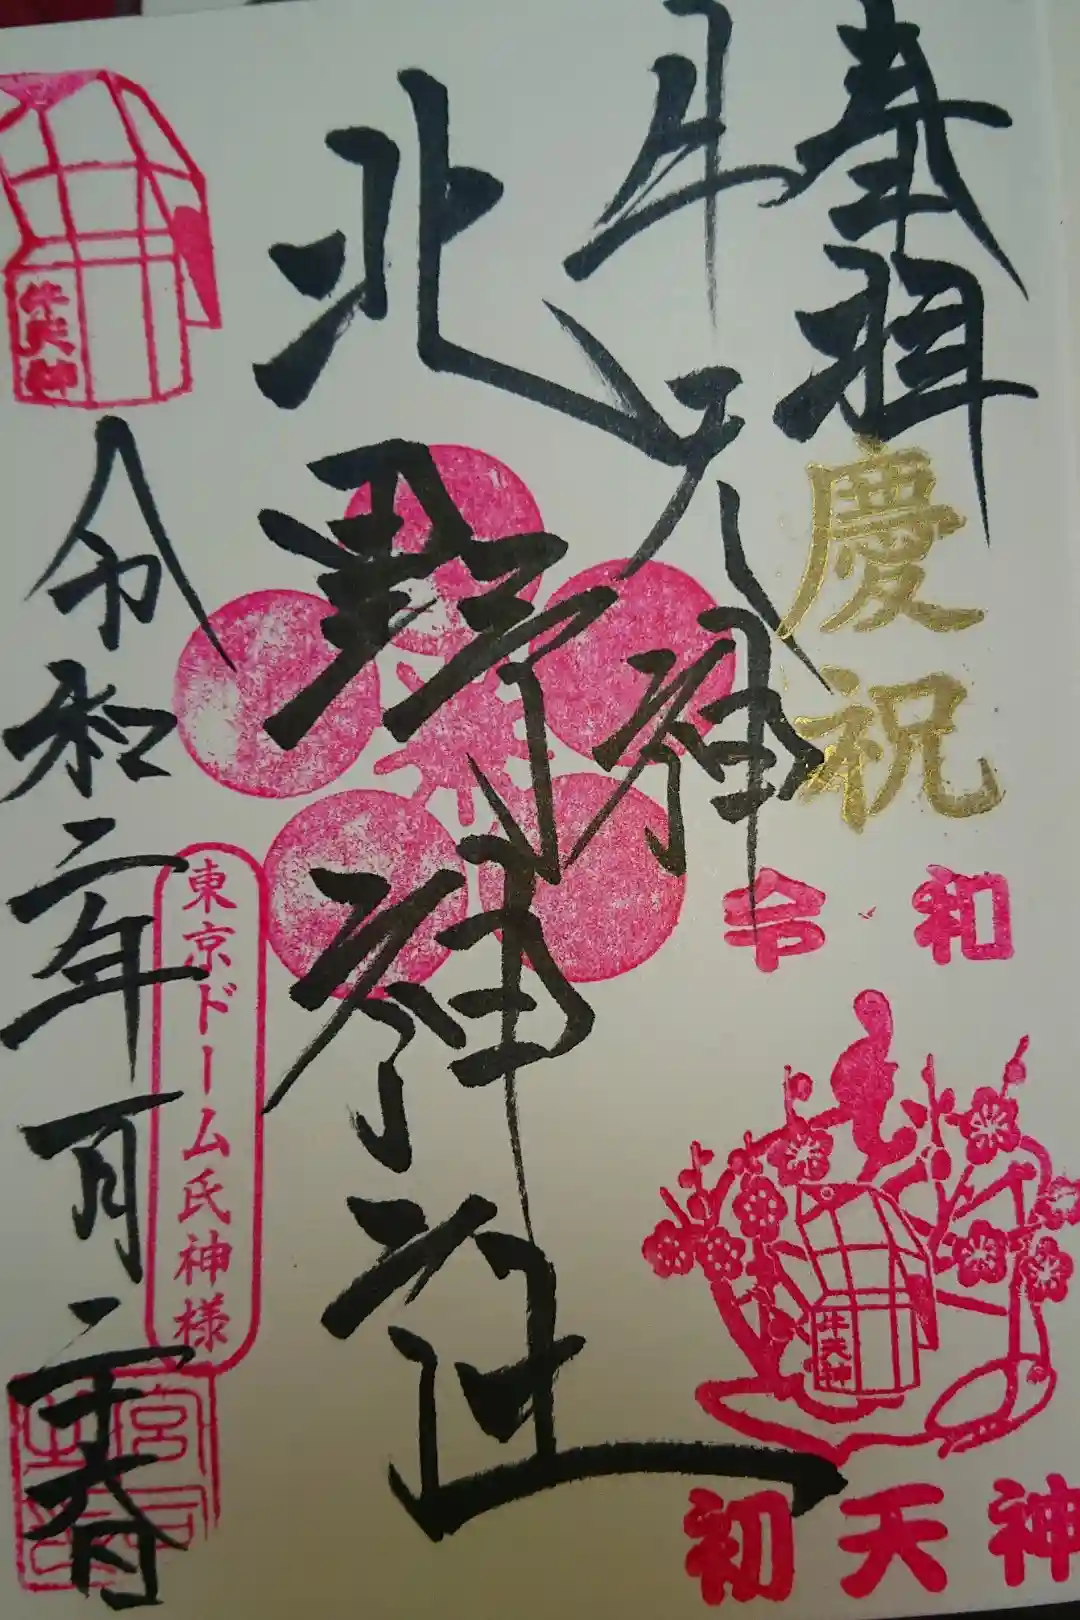 奉拝
慶祝
令和
牛天神
初天神
牛天神
北野神社
東京ドーム氏神様
牛天神
令和二年一月二十六日
宮司之印